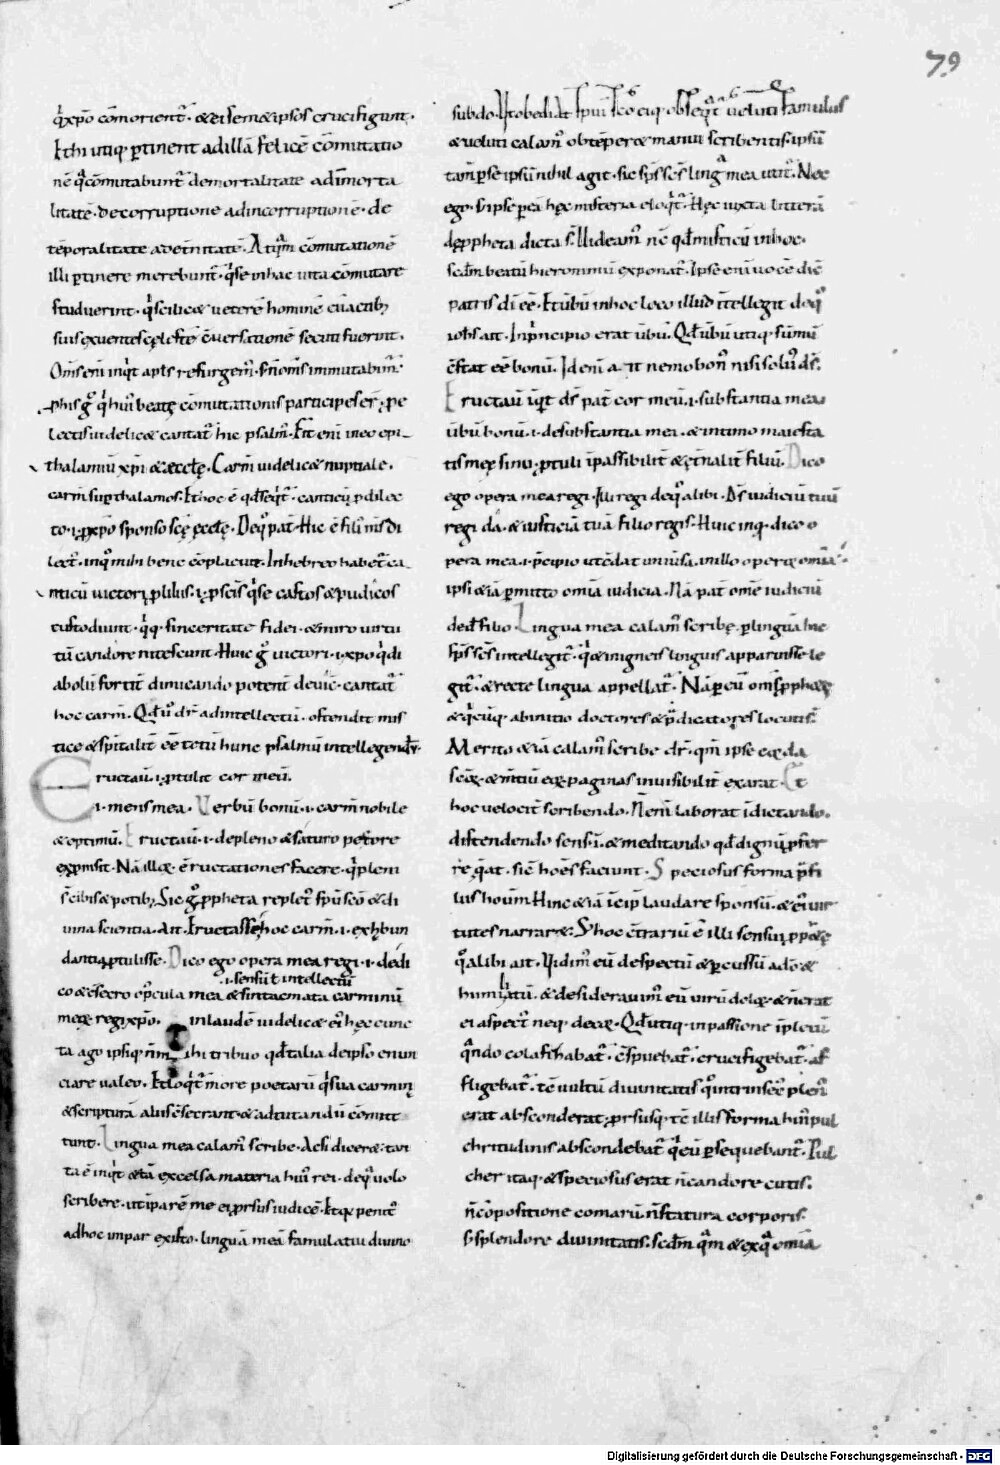 79
q̓ xp̄o cōmorient᷑ · & ei semetipsos crucifigunt ·
Et hi utiq; ꝑtinent ad illā felicē cōmutatio
nē q̓ cōmutabunt᷑ de mortalitate ad īmorta
litatē · de corruptione ad incorruptionē · de
tēporalitate ad et̄nitatē · commutationē
illi ꝑtinere merebunt᷑ · q̓ se in hac uita cōmutare
studuerint · q̓ scilic& ueterē hominē cū actib;
suis exuentes cęlestē cōuersationē secuti fuerint ·
Om̄s eni inq̓t apl̄s resurgem᷑ · s; n̄ om̄s immutabim᷑ ·
beatę cōmutationis participes
lectis uidelic& cantat᷑ hic psalm᷑ · Est eni in eo epi
thalamiū xp̄i & æcclę · Carm̄ uidelic& nuptiale ·
carm̄ suꝑ thalamos · Et hoc ē qđ seq̓t᷑ · canticū ꝓ dilec
to · i · ꝓ xp̄o sponso scę ęcclę · De q̊ pat᷑ · Hic ē fili᷑ m̄s di
lect᷑ · inq̊ mihi bene cōplacuit · In hebreo habet᷑ ca
nticū victori ꝓ liliis · i · ꝓ scīs q̓ se castos & pudicos
custodiunt · q̓q; sinceritate fidei · & miro uirtu
tū candore nitescunt · Huic g̊ victori · i · xp̄o q̓ di
abolū fortit̄ dimicando potent̄ deuic̄ · cantat᷑
hoc carm̄ · Qđ ū dr̄ ad intellectū · ostendit mis
tice & spitalit̄ eē totū hunc psalmū intellegendū ·
Eructauit · i · ꝓtulit cor meū ·
i · mens mea · Verbū bonū · i · carm̄ nobile
& optimū · Eructauit · i · de pleno & saturo pectore
exp̄ssit · Nā illę · eructationes facere · q̓ pleni
st̄ cibis & potib; Sic g̊ ꝓpheta replet᷑ sp̄u scō & di
uina scientia · Ait · Eructasse hoc carm̄ · i · exhbun
dantia ꝓtulisse · Dico ego opera mea regi · i · dedi
· i · sensuū ł intellectū
co & c̄secro opuscula mea & sintacmata carminū
meoꝝ regi xp̄o · in laudē uidelic& ei᷑ hęc cunc
ta ago ipsiq; tribuo qđ talia de ipso enun
ciare ualeo · Et loq̓t᷑ more poetarū q̓ sua carmina
& scripturā aliis c̄secrant & ad tutandū cōmit
tunt · Lingua mea calam᷑ scribe · Ac si diceret · tan
ta ē inq̓t & tā excelsa materia hui᷑ rei · de q̊ uolo
scribere · ut īparē me ei prsus iudicē · Itaq; penit᷑
ad hoc inpar existo · linguā meā famulatui diuino
subdo · Vt obediat sp̄ui scō eiq; obseq̓t᷑ ueluti famulus
& ueluti calam᷑ obtēperet manui scribentis ipsū
tam̄ ꝑ se ipsū nihil agit · sic sp̄s scs̄ linguā mea utit᷑ · Nec
ego · s; ipse ꝑ me hęc misteria eloq̓t᷑ · Hęc iuxta litterā
de ꝓpheta dicta st̄ · Uideam᷑ nc̄ qđ misticū in hoc ·
scdm̄ beatū hieronimū exponat᷑ · Ipse eni uocē dic̄
patris di eē · Et ūbū in hoc loco illud īntellegit de q̊
iohs̄ ait · In p̓ncipio erat ūbū · Qđ ūbū utiq; sūmū
c̄stat eē bonū · Ideni ait nemo bon᷑ nisi sol᷑ ds̄ ·
Eructauit inq̓t ds̄ pat̄ cor meū · i · substantia mea
ūbū bonū · i · de substantia mea · & intimo maiesta
tis meę sinu · ꝓtuli īpassibilit̄ & et̄nalit̄ filiū · Dico
ego opera mea regi · Illi regi de q̊ alibi · Ds̄ iudiciū tuū
regi da · & iusticiā tuā filio regis · Huic inq; dico o
pera mea · i · ut c̄dat uniūsa · in illo operę omīa
ipsi & iā ꝑmitto omīa iudicia · Nā pat̄ omē iudiciū
ded̄ filio · Lingua mea calam᷑ scribę · ꝑ linguā hic
sp̄s scs̄ intellegit᷑ · q̓ & in igneis linguis apparuisse le
git᷑ · & recte lingua appellat᷑ · Nā ꝑ eū om̄s ꝓph&ę
& q̓cūq; ab initio doctores & p̄dicatores locuti st̄ ·
Merito & iā calam᷑ scribe dr̄ · qm̄ ipse corda
scoꝝ · & mtiū eoꝝ paginas inuisibilit̄ exarat · Et
hoc uelocit̄ scribendo · N̄ eni laborat īdictando ·
distendendo sensū · & meditando qđ dignū ꝓfer
re q̄at · sic̄ hoēs faciunt · Speciosus forma p̄ fi
liis hoim̄ Hinc & iā īcip̄ laudare sponsū · & ei᷑ uir
tutes narrare · S; hoc c̄trariū ē illi sensui ꝓph&ę
q̊ alibi ait · Vidim᷑ eū despectū & ꝑcussū a dō &
humiliatū · & desiderauim᷑ eū uirū doloꝝ · & n̄ erat
ei aspect᷑ neq; decor · Qđ utiq; in passione īpletū
q̄ndo colafizabat᷑ · c̄spuebat᷑ · crucifigebat᷑ · af
fligebat᷑ · tc̄ uultū diuinitatis q̊ intrinsec᷑ plen᷑
erat absconderat · prsusq; tc̄ illis forma hui᷑ pul
chritudinis abscondebat᷑ q̓ eū ꝑsequebant᷑ · Pul
cher itaq; & speciosus erat n̄ candore cutis ·
n̄ cōpositione comarū · n̄ statura corporis ·
s; splendore diuinitatis · scdm̄ q̄m & ex q̄ omīa
Digitalisierung gefördert durch die Deutsche Forschungsgemeinschaft - DFG